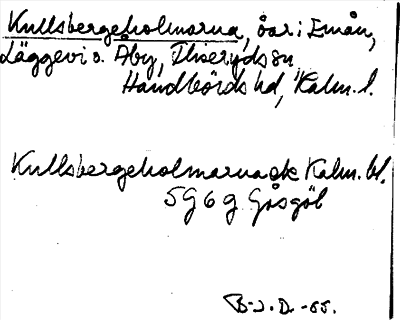 Kullsbergeholmarna, öar i Emån,
Läggevi o. Åby, Fliseryds sn
Handbörds hd, Kalm. l.
Kullsbergeholmarna ek Kalm. bl.
5G6g Gåsgöl
B-J. D. -55.